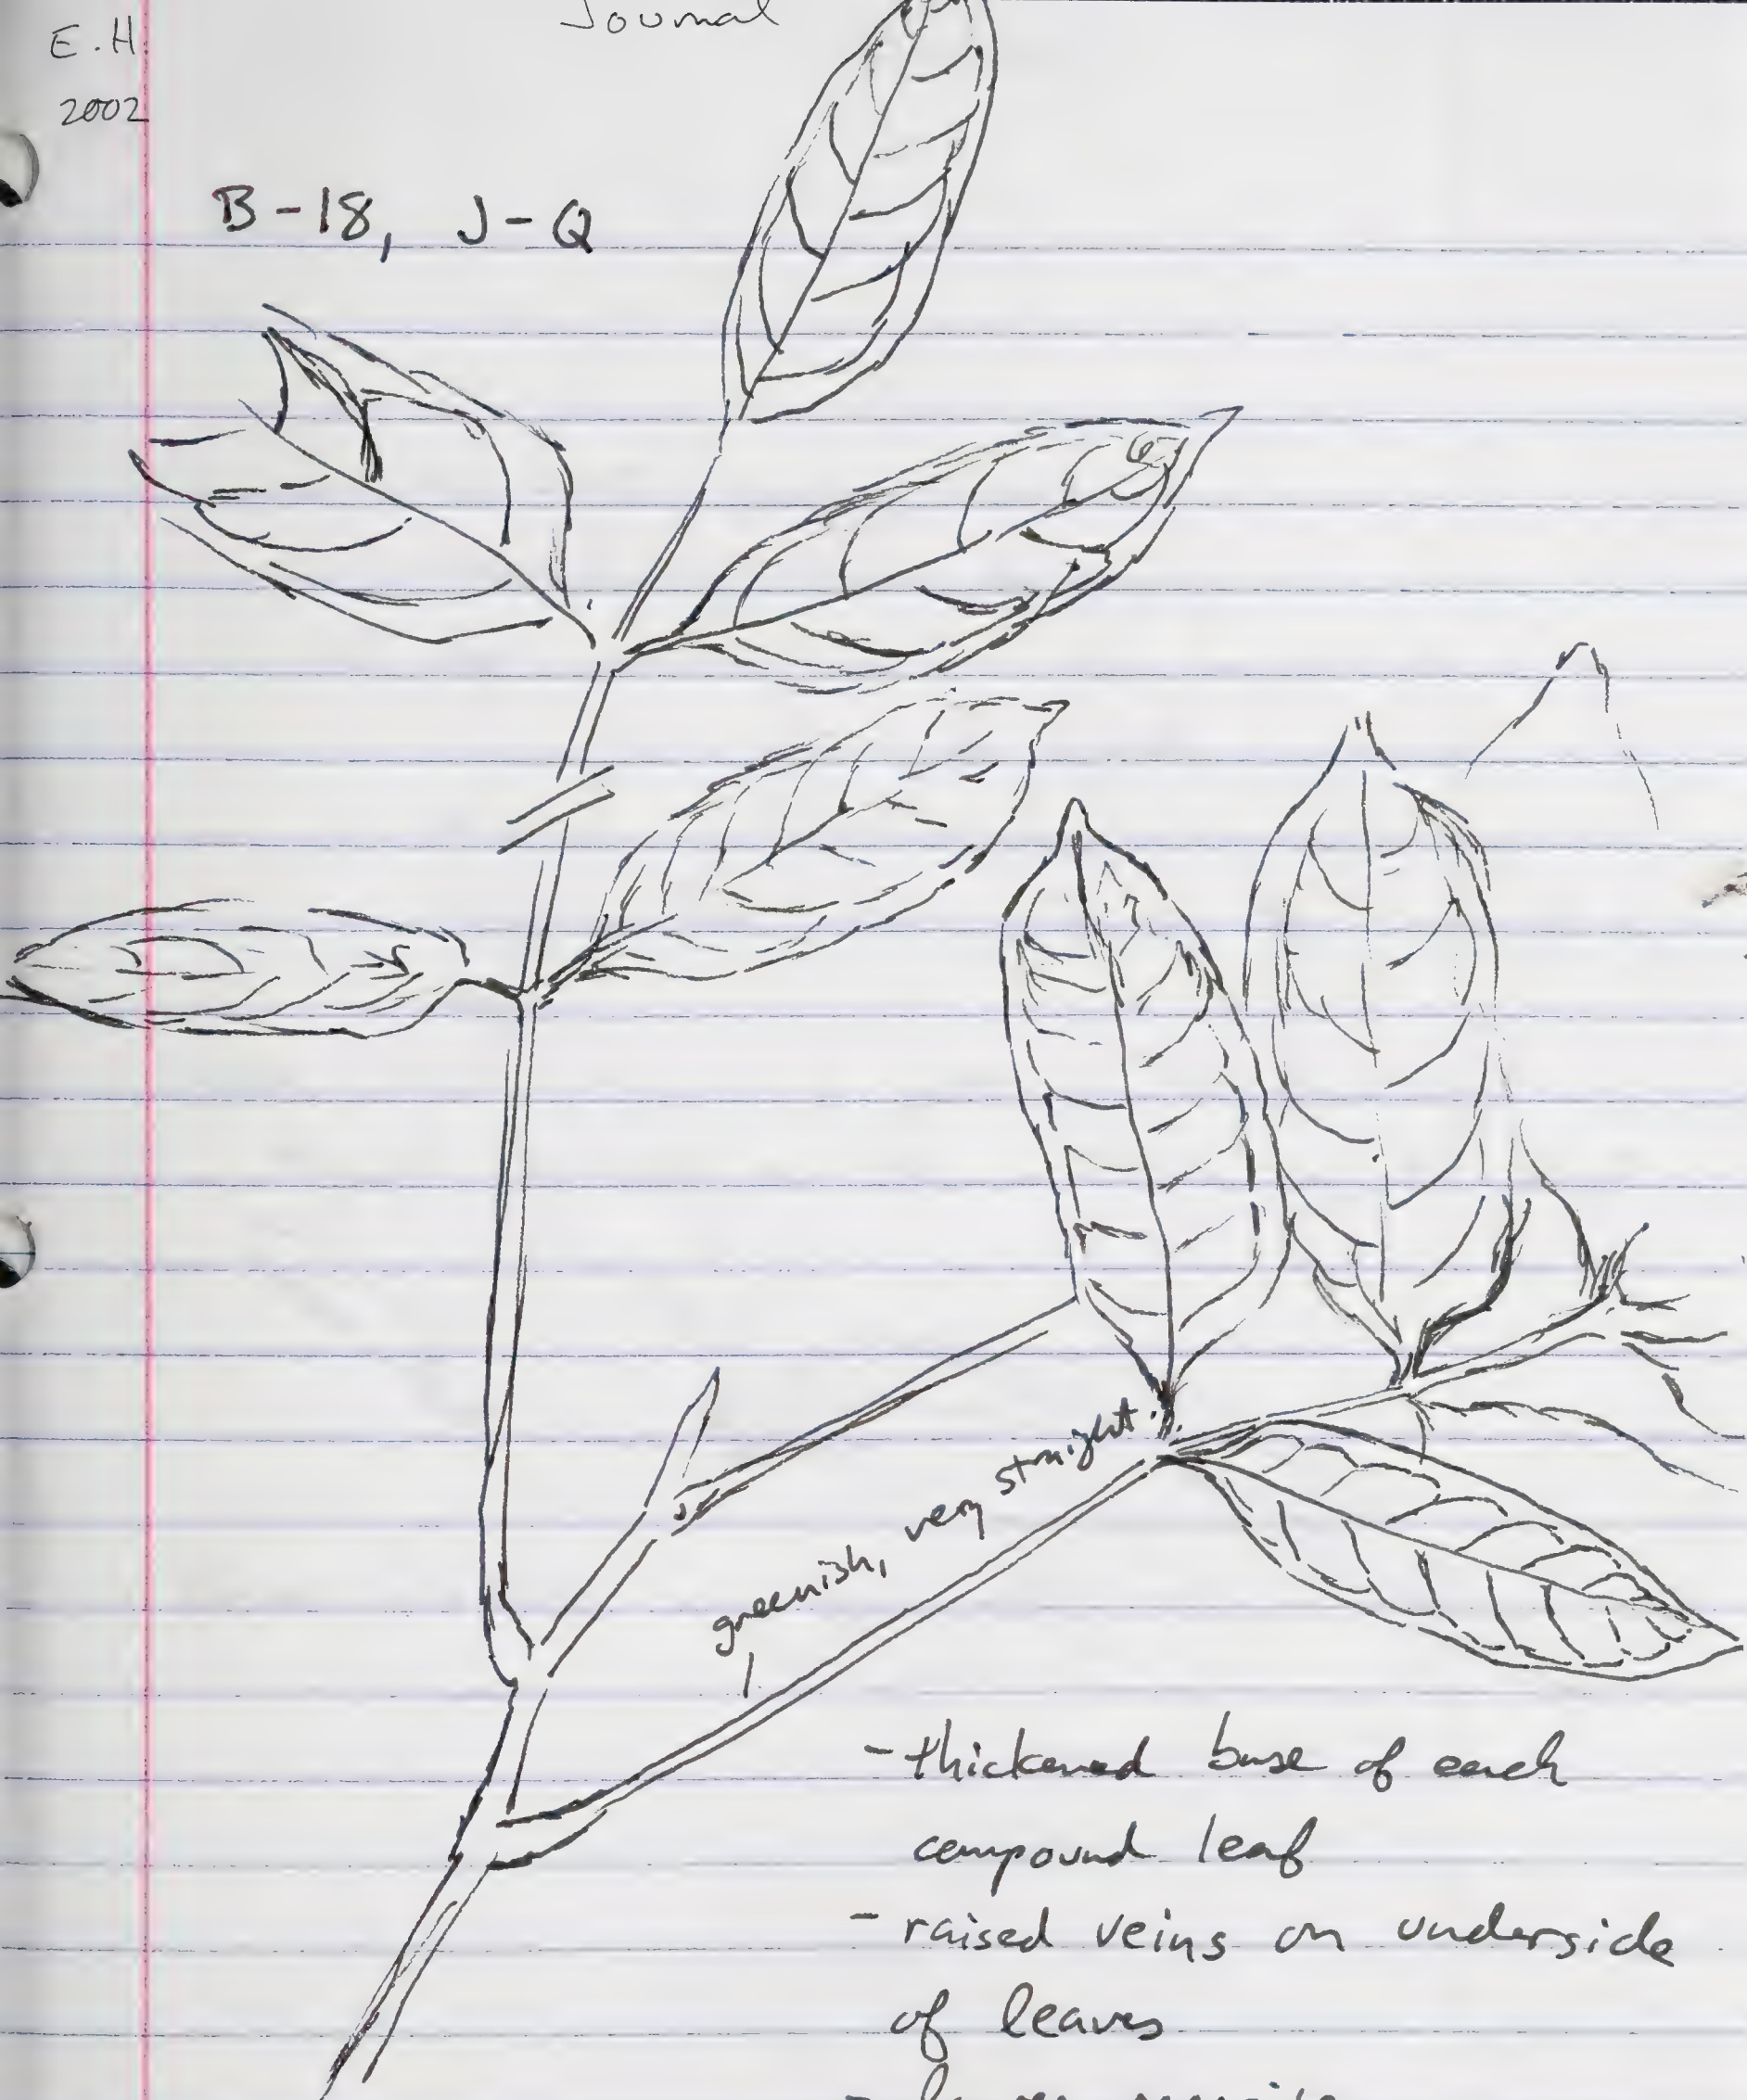 Journal
E.H.
2002
B-18, J-Q
greenish, very straight
- thickened base of each
compound leaf
- raised veins on underside
of leaves